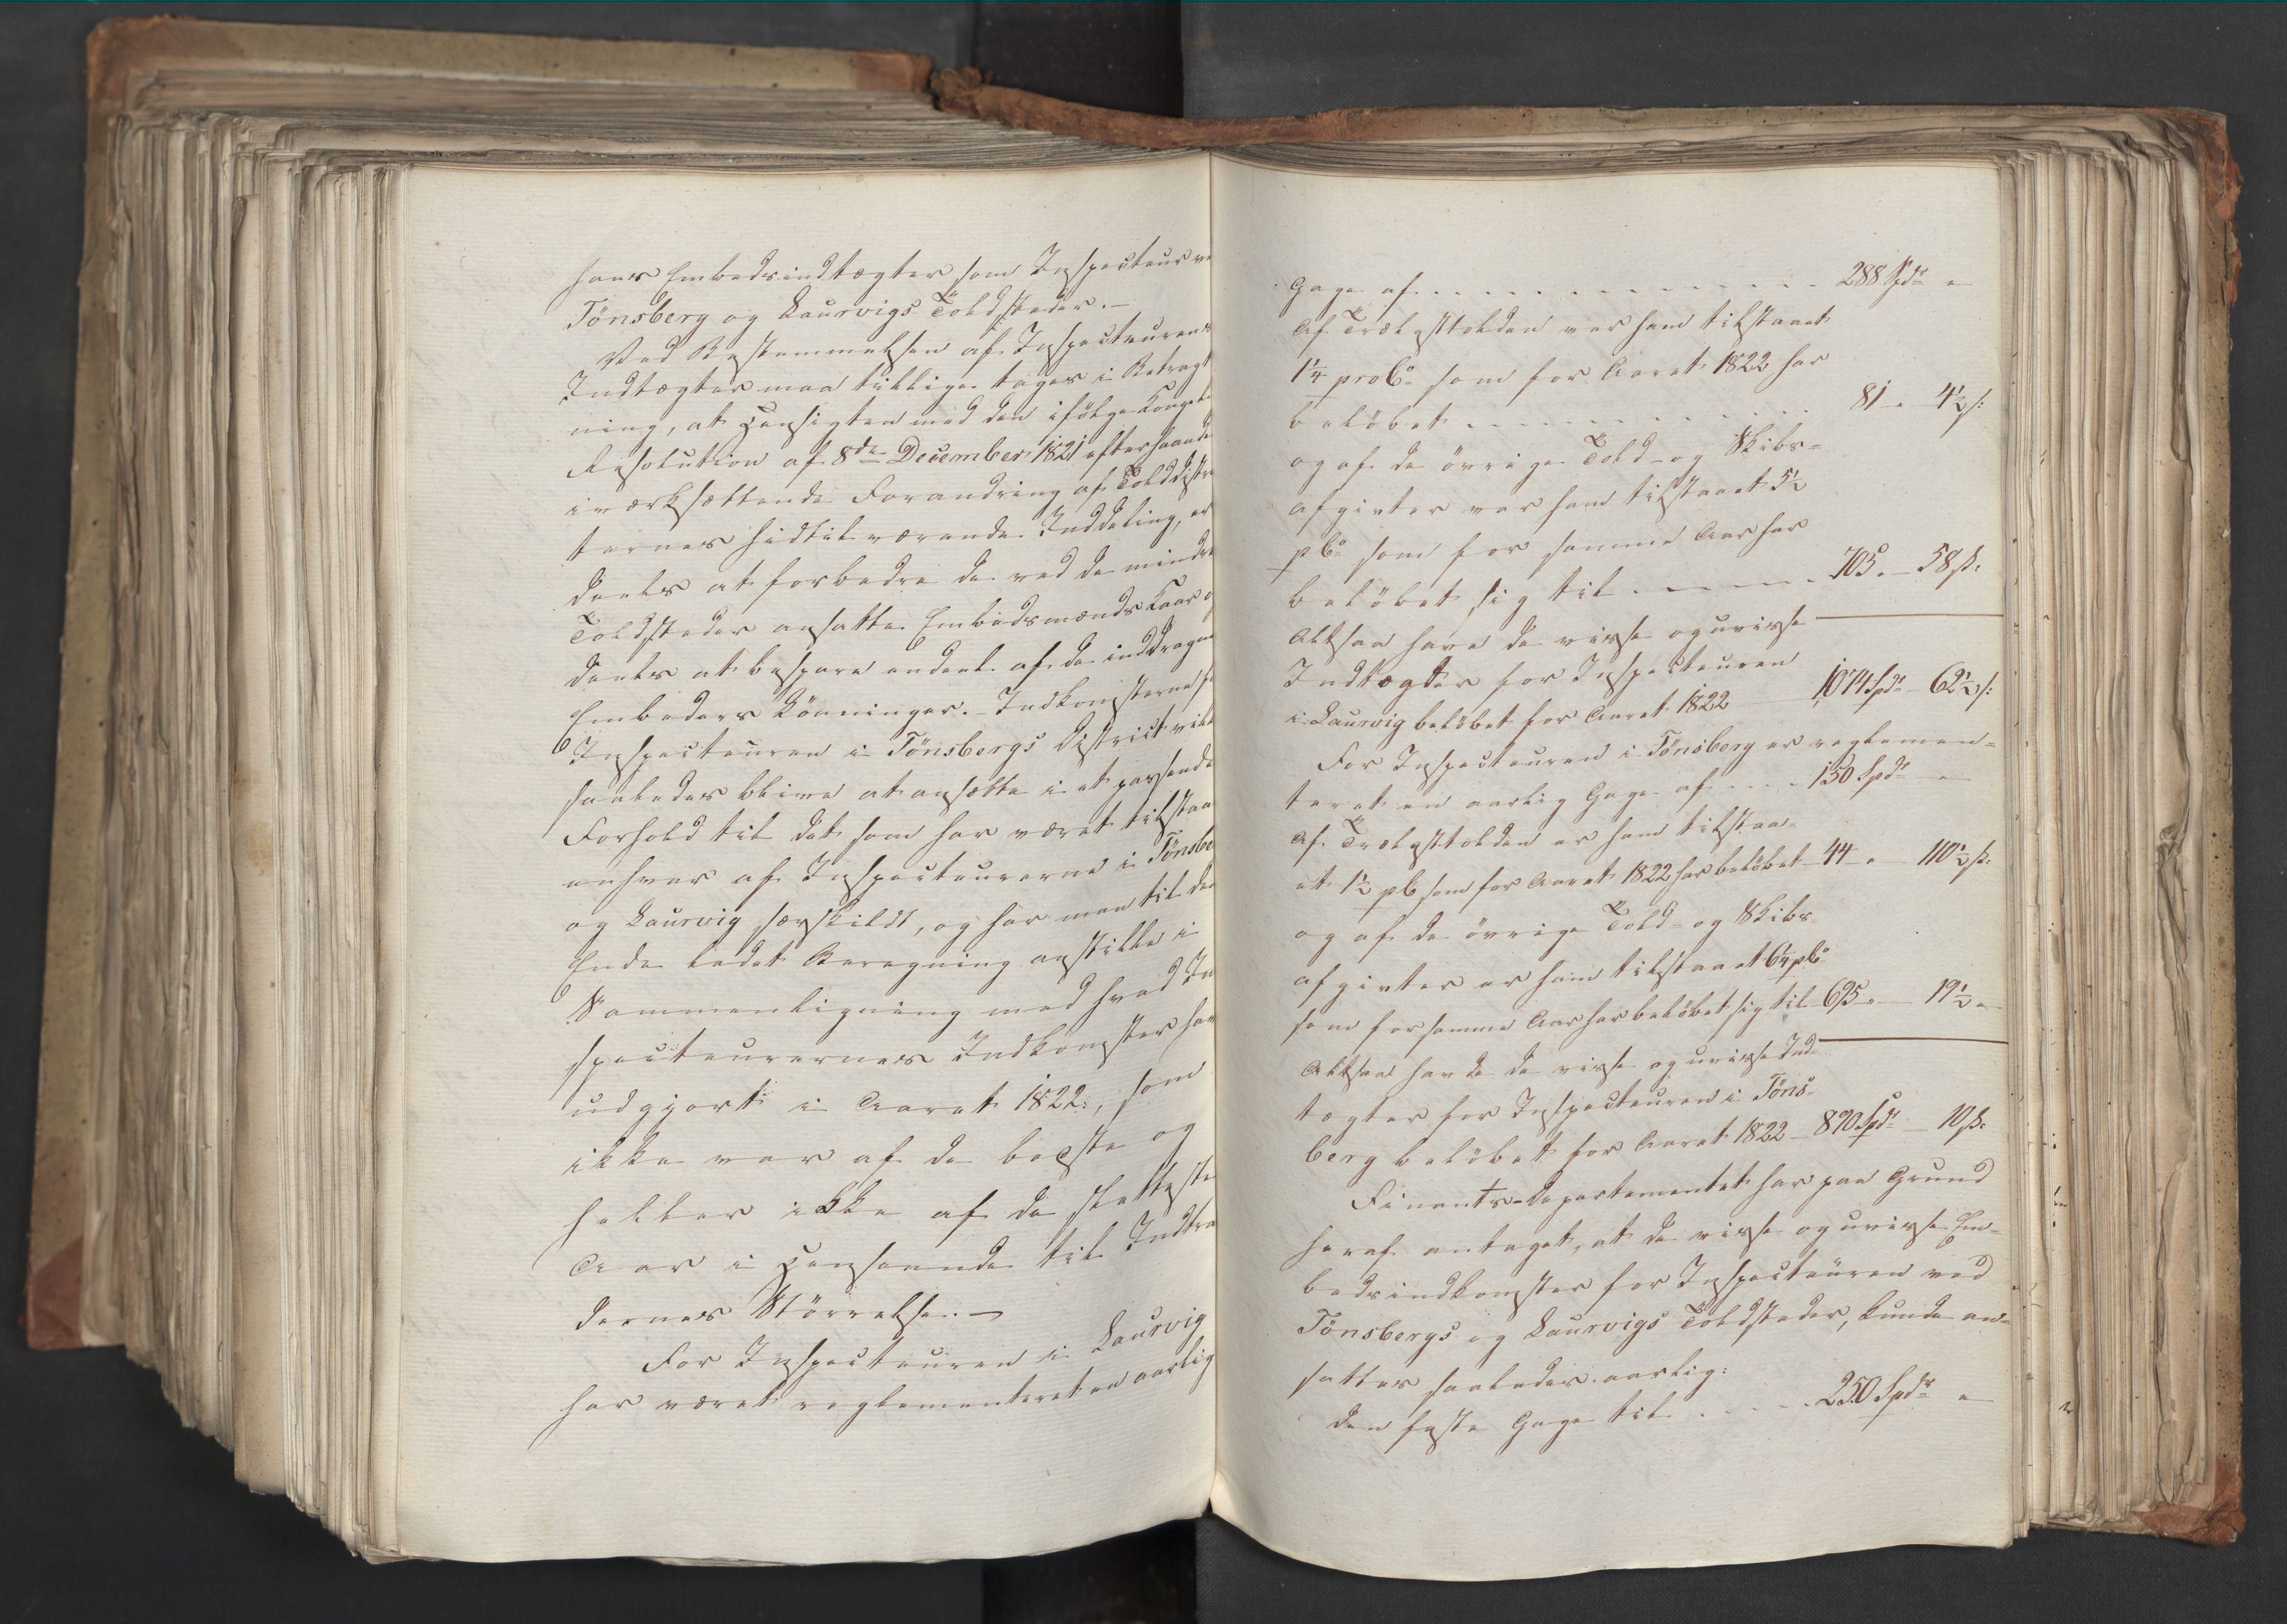 hans Embedsindtægter som Inspecteur ve
Tönsberg og Laurvigs Toldsteder.-
Ved Bestemmelsen af Inspecteurens
Indtægter maa tillige tages i Betragt
ning, at Hensigten med den ifölge Kongel
Resolution af 8de December 1821 efterhaande
iværksættende Forandring af Tolddistri
ternes hidtil værende Inddeling, er
deels at forbedre de ved de mindre
Toldsteder ansatte Embedsmænds Kaar o
deels at bespare endeel af de inddragne
Embeders Lönninger.- Indkomsterne fo
Inspecteuren i Tönsbergs District vil
saaledes blive at ansætte i et passende
Forhold til det som har været tilstaa
enhver af Inspecteurerne i Tönsbe
og Laurvig særskildt, og har man til den
Ende ladet Beregning anstille i
Sammenligning med hvad In
specteurernes Indkomster har
udgjort i Aaret 1822, som
ikke var af de beste og
heller ikke af de sletteste
Aar i Henseende til Indtra
dernes Störrelse.-
For Inspecteuren i Laurvig
har været reglementeret en aarlig
Gage af . . . . . . . . . . . . . 288 Spdr "
Af Trælasttolden var ham tilstaaet
1 1/4 proCo som for Aaret 1822 har
belöbet . . . . . . . . . . 81 " 4 1/2 s:
og af de övrige Told- og Skibs-
afgivter var ham tilstaaet 5 1/2
pCo som for samme Aar har
belöbet sig til . . . . . 705 " 58 s:
Altsaa have de visse og uvisse
Indtægter for Inspecteuren
i Laurvig belöbet for Aaret 1822 1074 Spdr 62 1/2 s:
For Inspecteuren i Tönsberg er reglemen-
teret en aarlig Gage af . . . . 150 Spdr "
Af Trælasttolden er ham tilstaa-
et 1 1/2 pC som for Aaret 1822 har belöbet 44 " 110 1/2 s:
og af de övrige Told- og Skibs-
afgivter er ham tilstaaet 6 1/4 pCo
som for samme Aar har belöbet sig til 695 " 19 1/2 "
Altsaa havde de visse og uvisse Ind-
tægter for Inspecteuren i Töns-
berg belöbet for Aaret 1822 - 890 Spdr 10 s:
Finants-Departementet har paa Grund
heraf antaget, at de visse og uvisse Em-
bedsindkomster for Inspecteuren ved
Tönsbergs og Laurvigs Toldsteder, kunde an-
sættes saaledes aarlig:
den faste Gage til . . . . . 250 Spdr "